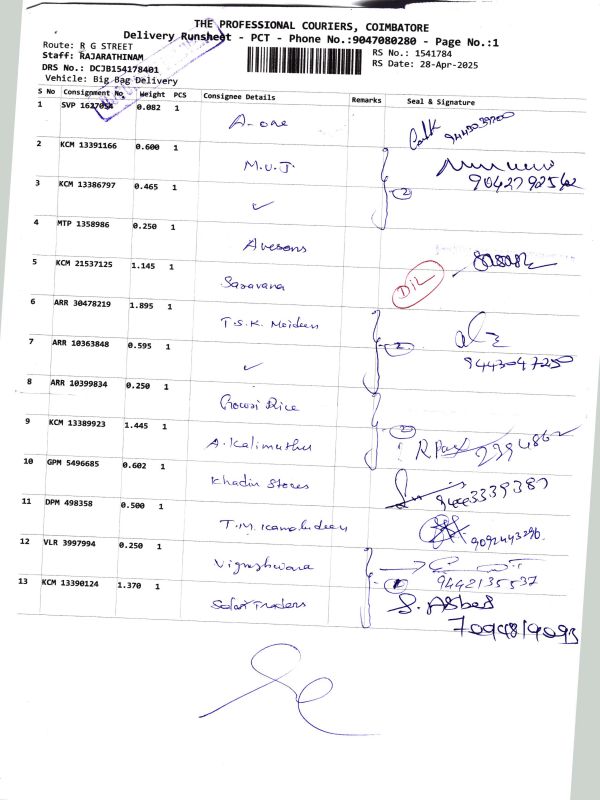 THE PROFESSIONAL COURIERS, COIMBATORE
Delivery Runsheet - PCT - Phone No.:9047080280 - Page No.:1
Route: R G STREET
Staff: RAJARATHINAM
DRS No.: DCJB154178401
Vehicle: Big Bag Delivery
RS No.: 1541784
RS Date: 28-Apr-2025
S No Consignment No Weight PCS Consignee Details Remarks Seal & Signature
1 SVP 1627054 0.082 1 A-one
2 KCM 13391166 0.600 1 M.U.J
9042792562
3 KCM 13386797 0.465 1 ✓ 2
4 MTP 1358986 0.250 1 Avesons
5 KCM 21537125 1.145 1 Saravana
6 ARR 30478219 1.895 1 T.S.K. Meideen
7 ARR 10363848 0.595 1 ✓ 2 9443047250
8 ARR 10399834 0.250 1 Gowri Rice
9 KCM 13389923 1.445 1 A.Kalimuthu 2
10 GPM 5496685 0.602 1 Khadir Stores 9443339387
11 DPM 498358 0.500 1 T.M.Kamaludeen 9092443296
12 VLR 3997994 0.250 1 Vigneshwara
9442135537
13 KCM 13390124 1.370 1 Selva Traders S. ABbas